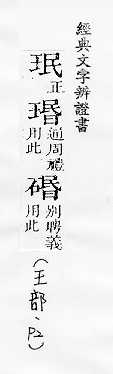 經典文字辨證書
珉正
瑉通周禮用此
碈別聘義用此
(王部、P2)